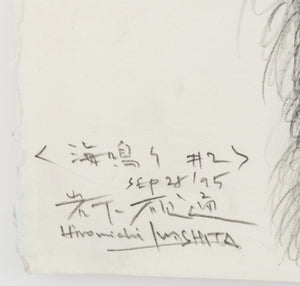 <海鳴り #2>
SEP 28 '95
岩下
Hiromichi IWASHITA